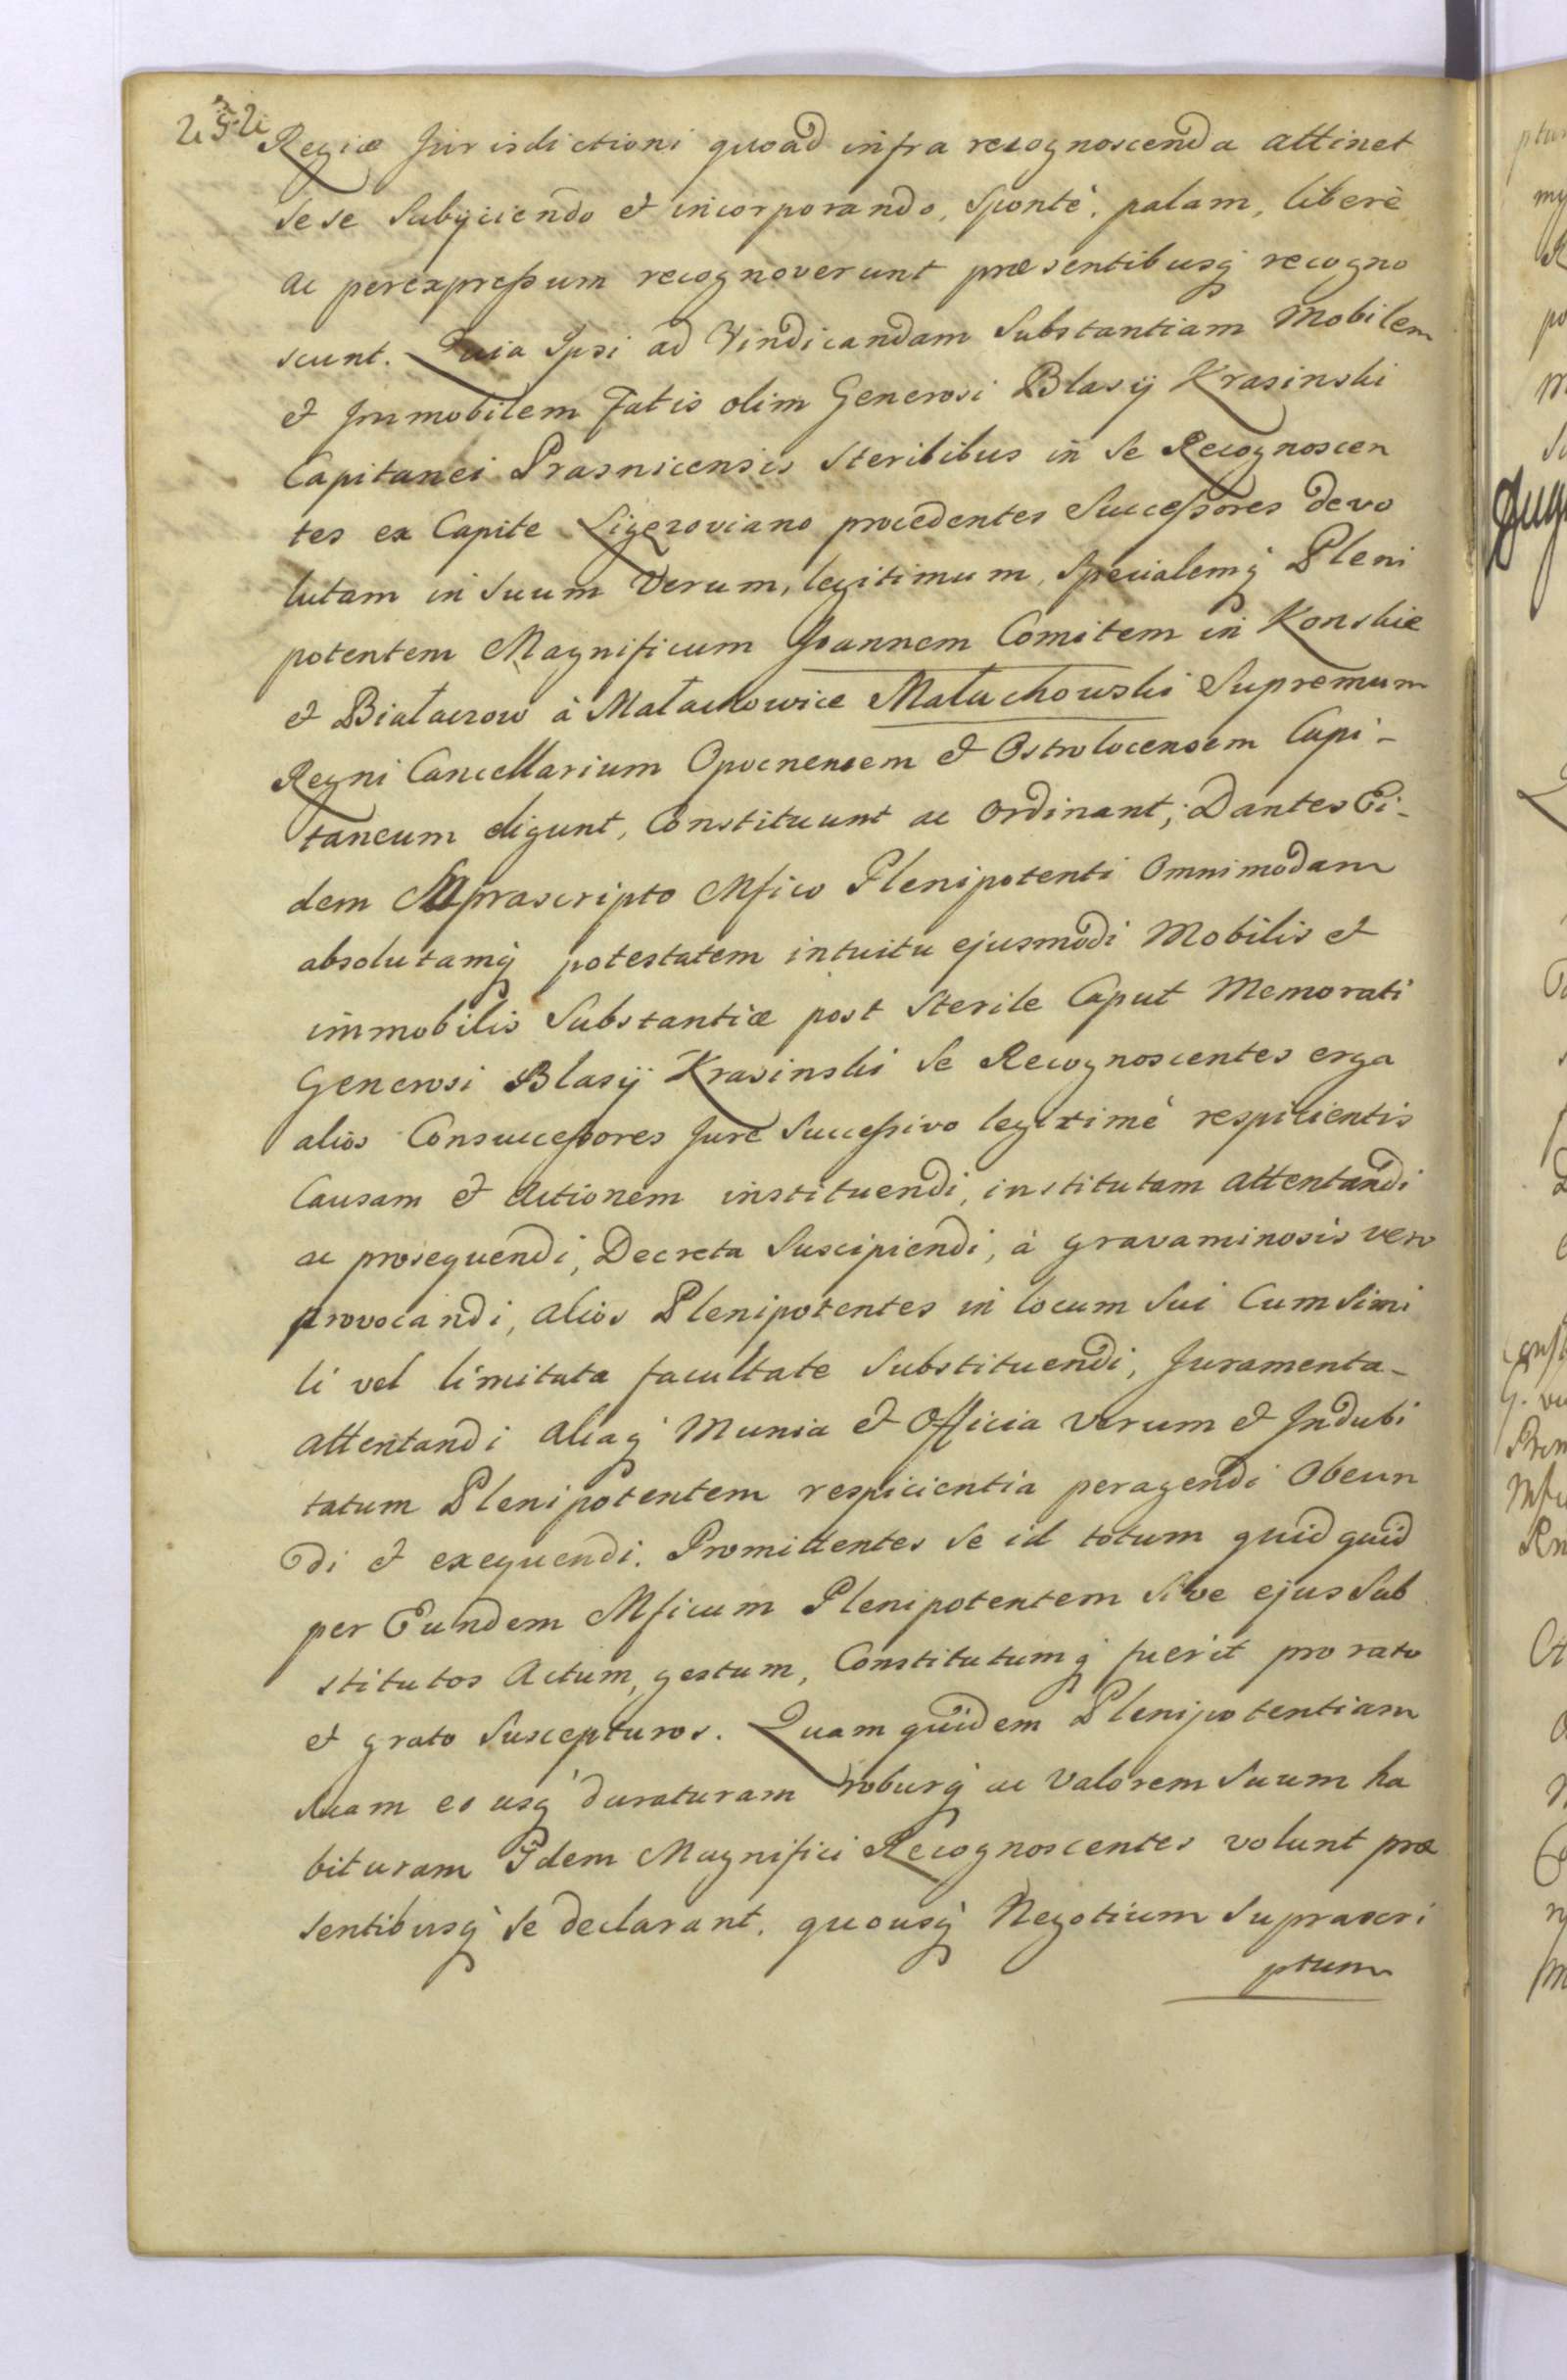 252
Regiæ Jurisdictioni quoad infra recognoscenda attinet
sese Subijciendo et incorporando, sponte, palam, liberè
ac perexpressum recognoverunt præsentibusq recogno
scunt. Quia Ipsi ad Vindicandam Substantiam Mobilem
et Immobilem Fatis olim Generosi Blasij Krasinski
Capitanei Prasnicensis Sterilibus in Se Recognoscen
tes ex Capite procedentes Successores devo
lutam in Suum Verum, legitimum, Specialemq Pleni
potentem Magnificum Joannem Comitem in Konskie
et Białaczow à Małachowice Małachowski Supremum
Regni Cancellarium Opocnensem et Ostrolocensem Capi-
taneum eligunt, Constituunt ac Ordinant; Dantes Ei-
dem Suprascripto Mfico Plenipotenti Omnimodam
absolutamq potestatem intuitu ejusmodi Mobilis et
immobilis Substantiæ post Sterile Caput Memorati
Generosi Blasij Krasinski Se Recognoscentes erga
alios Consuccessores Jure Successivo legitimè respicientis
Causam et Actionem instituendi, institutam attentandi
ac prosequendi, Decreta Suscipiendi, à gravaminosis vero
provocandi, alios Plenipotentes in locum Sui Cum Simi
li vel limitata facultate Substituendi, Juramenta-
attentandi aliaq Munia et Officia Verum et Indubi
tatum Plenipotentem respicientia peragendi Obeun
di et exequendi. Promittentes Se id totum quidquid
per Eundem Mficum Plenipotentem Sive ejus Sub
stitutos Actum, gestum, Constitutumq fuerit pro rato
et grato Suscepturos. Quam quidem Plenipotentiam
Suam eo usq duraturam roburq ac Valorem Suum ha
bituram Idem Magnifici Recognoscentes volunt præ
sentibusq Se declarant, quousq Negotium Suprascri
ptum